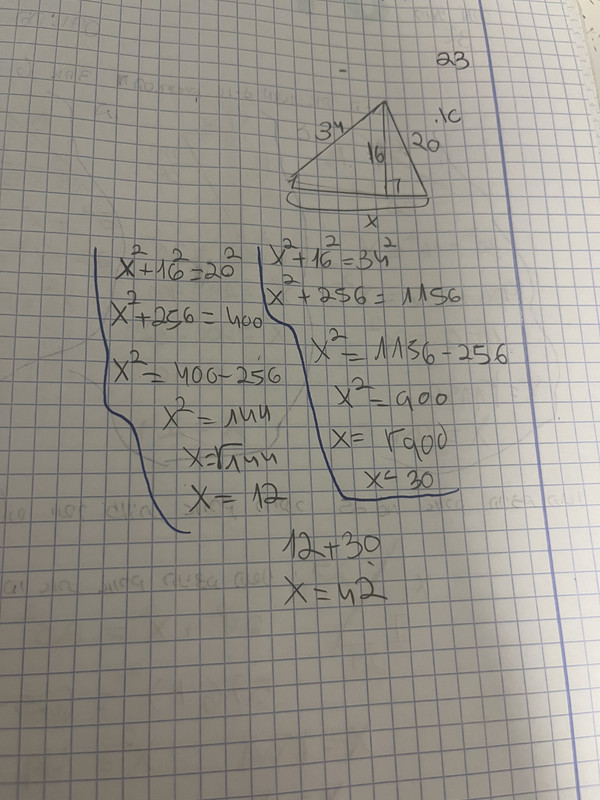 23
34
16
20
.1C
x
x²+16²=20²
x²+256=400
x²=400-256
x²=144
x=√144
x=12
x²+16²=34²
x²+256=1156
x²=1156-256
x²=900
x=√900
x=30
12+30
x=42